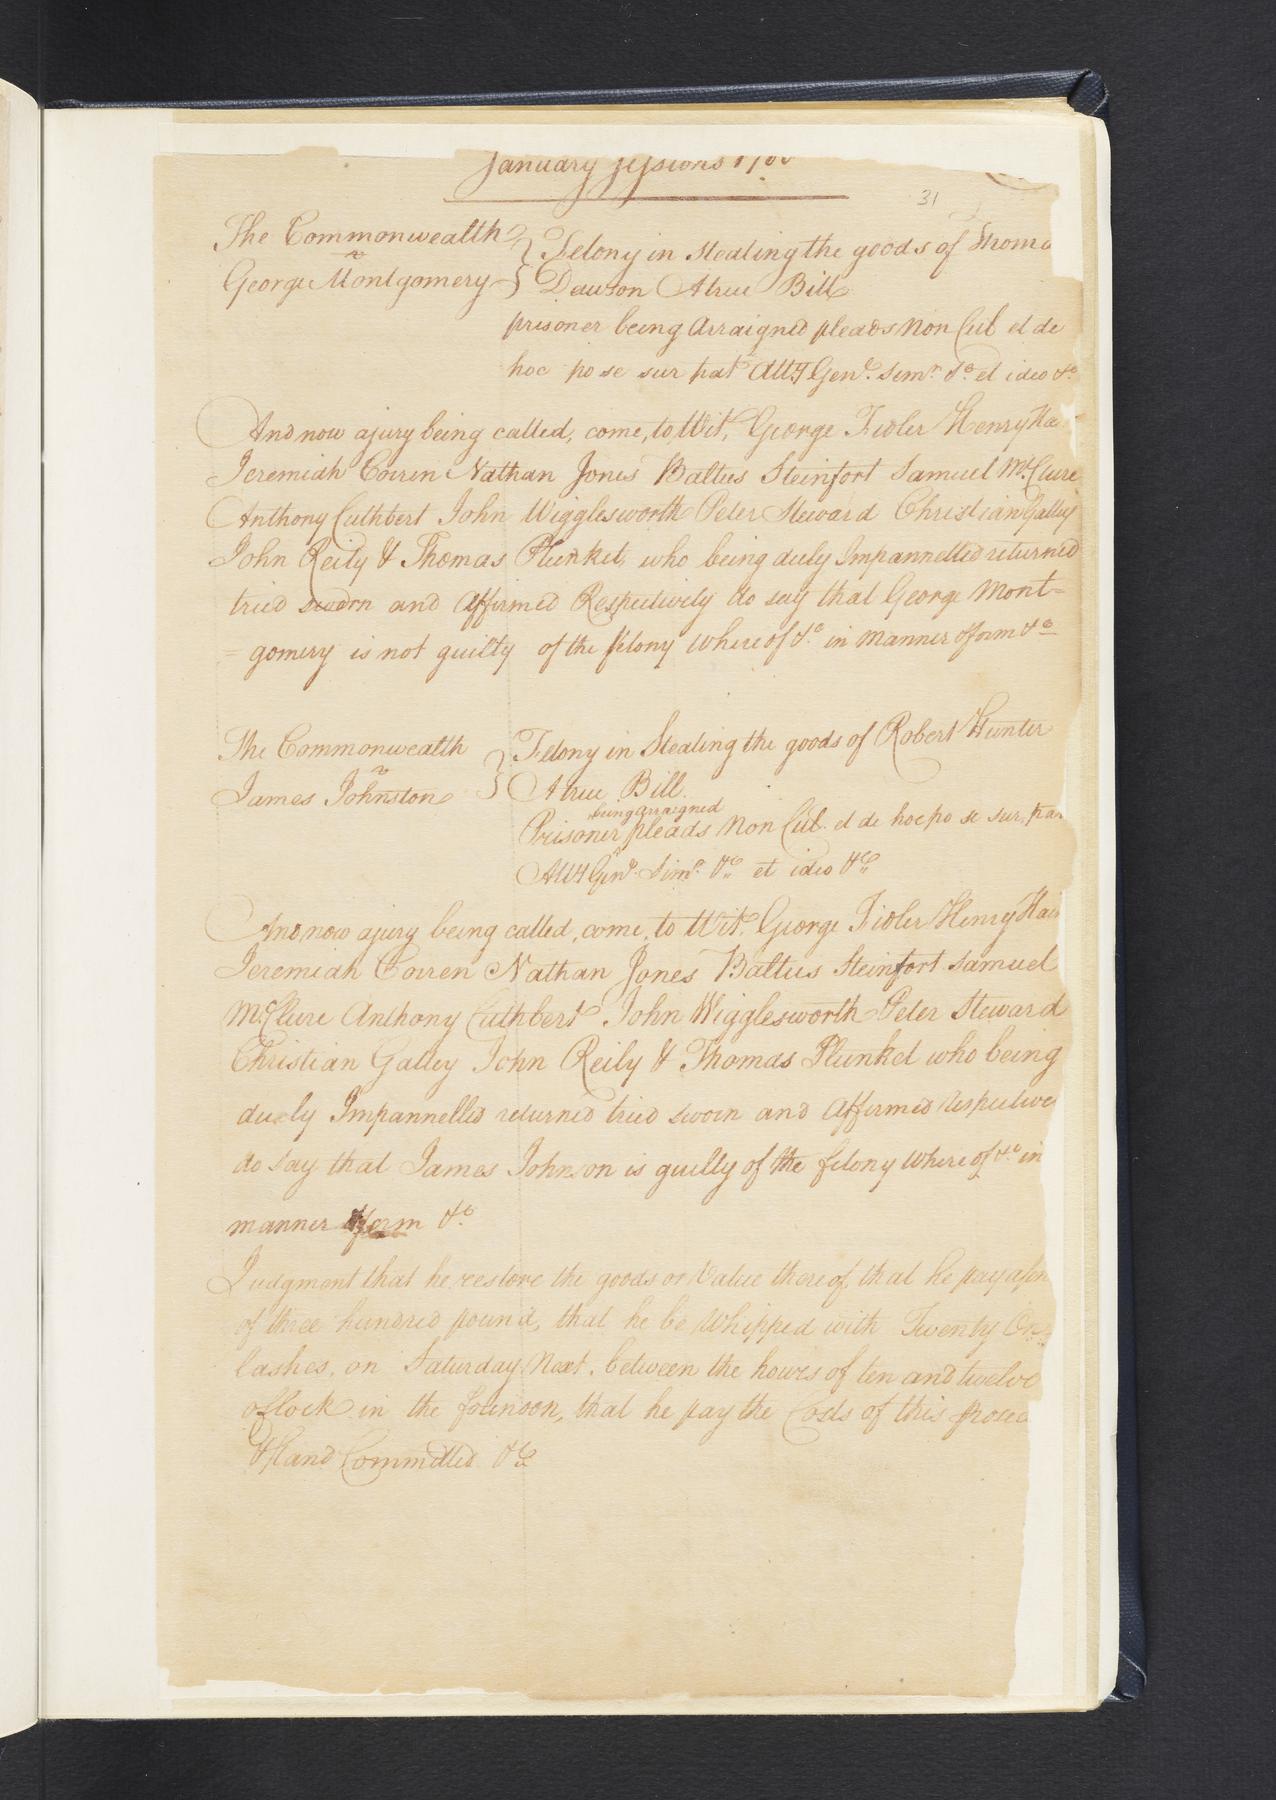 January Sessions 17
31
The Commonwealth } Felony in Stealing the goods of Thoma
v
George Montgomery } Dawson A true Bill
prisoner being Arraigned pleads Non Cul et de
hoc po se sur pat Atty Genl. Simr. &c. et ideo &c.
And now a jury being called, come, to Wit, George Fidler Henry Ha
Jeremiah Coiren Nathan Jones Baltus Steinfort Samuel McClure
Anthony Cuthbert John Wigglesworth Peter Steward Christian Galley
John Reily & Thomas Plunket, who being duly Impannelled returned
tried sworn and Affirmed Respectively do say that George Mont=
=gomery is not guilty of the felony Whereof &c. in manner & form &c
The Commonwealth } Felony in Stealing the goods of Robert Hunter
v
James Johnston } A true Bill.
being arraigned
Prisoner pleads Non Cul. et de hoc po se sur pa
Atty Genl. Simr. &c et ideo &c
And now a jury being called, come, to Wit, George Fidler Henry Hai
Jeremiah Coiren Nathan Jones Baltus Steinfort Samuel
McClure Anthony Cuthbert John Wigglesworth Peter Steward
Christian Galley John Reily & Thomas Plunket who being
duely Impannelled returned tried sworn and Affirmed respective
do say that James Johnson is guilty of the felony Whereof &c in
manner & form &c.
Judgment that he restore the goods or Value thereof, that he pay a fin
of three hundred pound, that he be Whipped with Twenty On
lashes, on Saturday Next, between the hours of ten and twelve
oClock in the forenoon, that he pay the Costs of this prosec
& Stand Committed &c